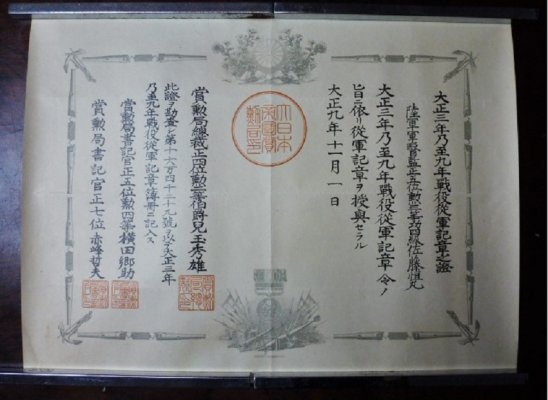 大正三年乃至九年戦役従軍記章之證
陸軍軍醫監正五位勲三等功四級佐藤恒丸
大正三年乃至九年戦役従軍記章令ノ
旨ニ依リ従軍記章ヲ授與セラル
大正九年十一月一日
大日本
帝國賞
勲局印
賞勲局總裁正四位勲二等伯爵兒玉秀雄
此證ヲ勘査シ第十六万四千二十九號ヲ以テ大正三年
乃至九年戦役従軍記章簿冊ニ記入ス
賞勲局書記官正五位勲四等横田郷助
賞勲局書記官正七位赤峰哲夫